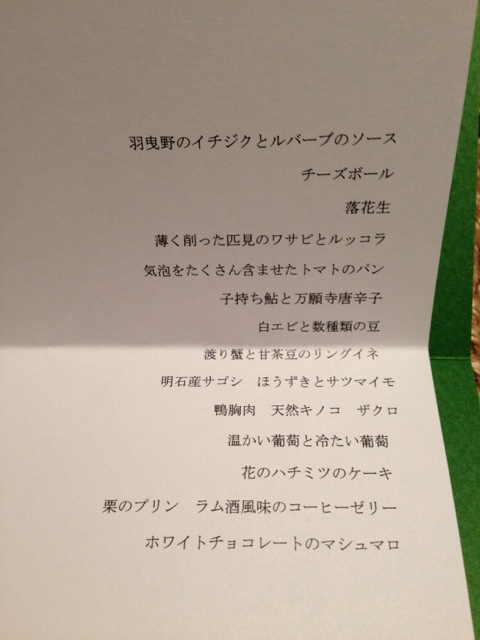 羽曳野のイチジクとルバーブのソース
チーズボール
落花生
薄く削った匹見のワサビとルッコラ
気泡をたくさん含ませたトマトのパン
子持ち鮎と万願寺唐辛子
白エビと数種類の豆
渡り蟹と甘茶豆のリングイネ
明石産サゴシ　ほうずきとサツマイモ
鴨胸肉　天然キノコ　ザクロ
温かい葡萄と冷たい葡萄
花のハチミツのケーキ
栗のプリン　ラム酒風味のコーヒーゼリー
ホワイトチョコレートのマシュマロ